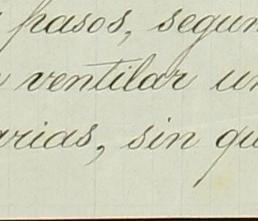 pasos, segun
ventilar un
arias, sin qu